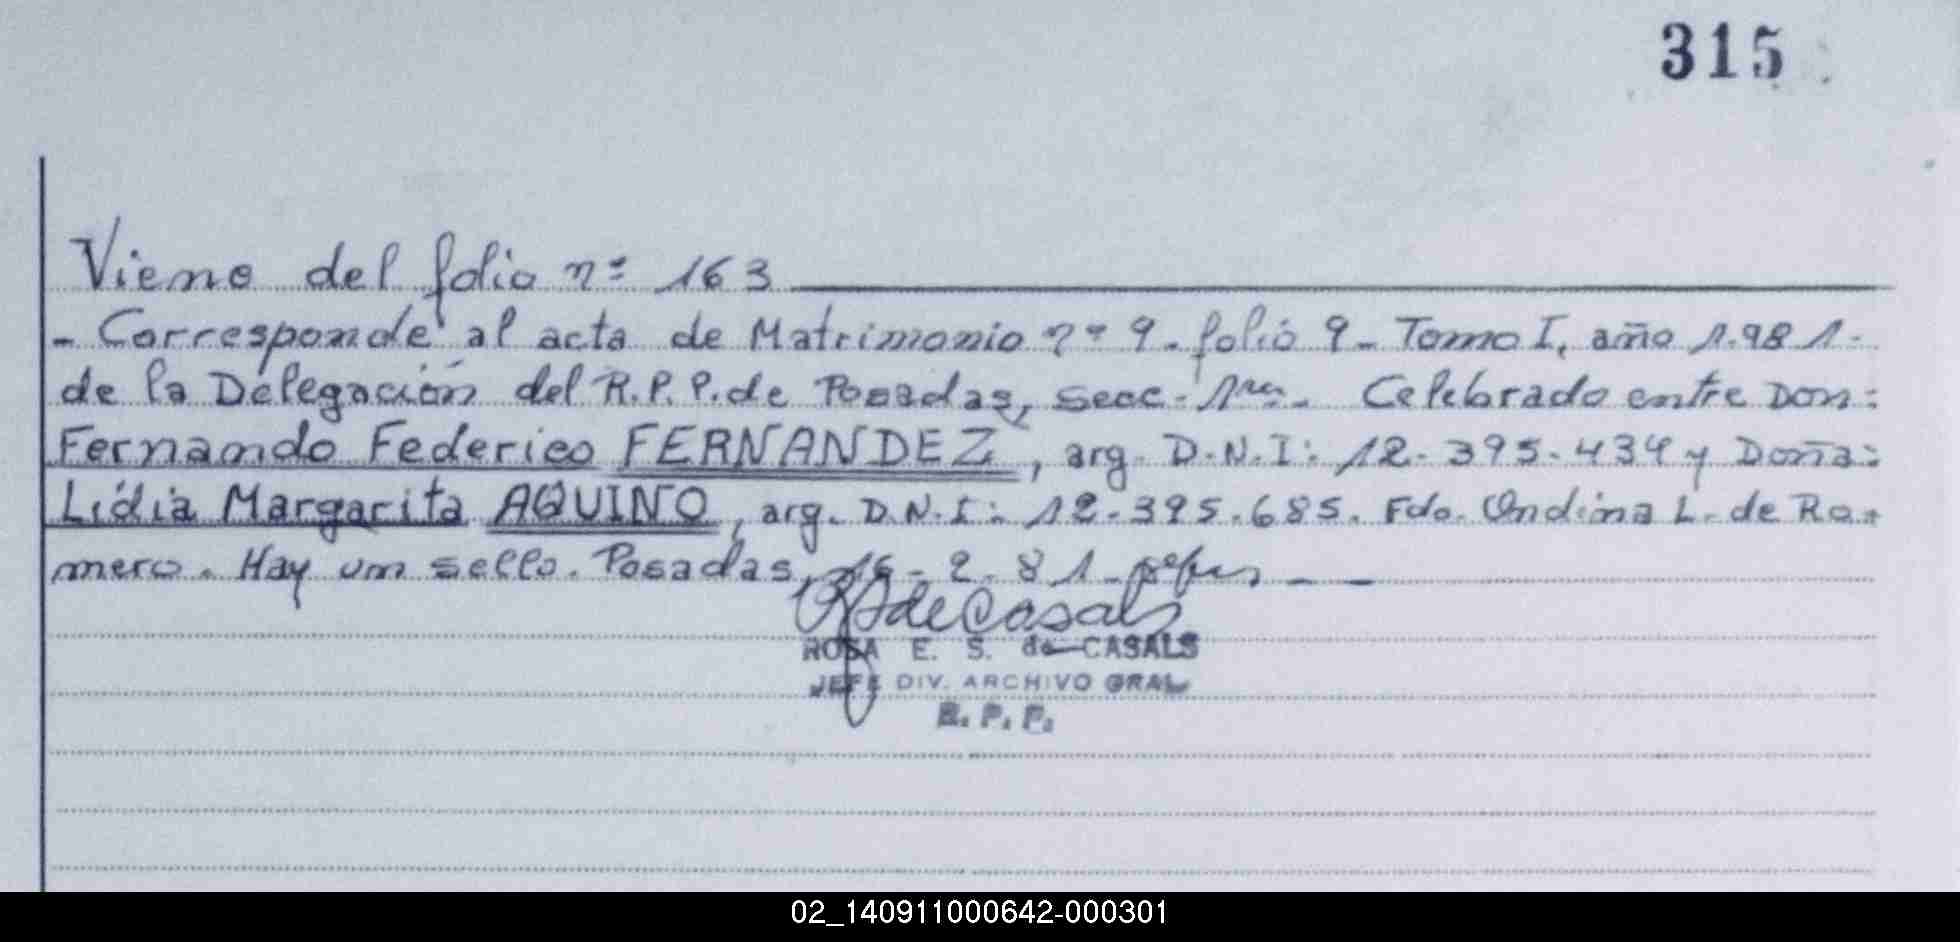 315
Viene del folio nº 163
- Corresponde al acta de Matrimonio nº 9. folio 9- Tomo I, año 1.981-
de la Delegación del R.P.P. de Posadas, secc. 1ra. Celebrado entre Don:
Fernando Federico FERNANDEZ, arg. D.N.I: 12.395.434 y Doña:
Lidia Margarita AQUINO, arg. D.N.I: 12.395.685. Fdo. Ondina L. de Ro-
mero. Hay un sello. Posadas, 16-2-81-
de Casals
ROSA E. S. de CASALS
JEFE DIV. ARCHIVO GRAL
R. P. P.
02_140911000642-000301